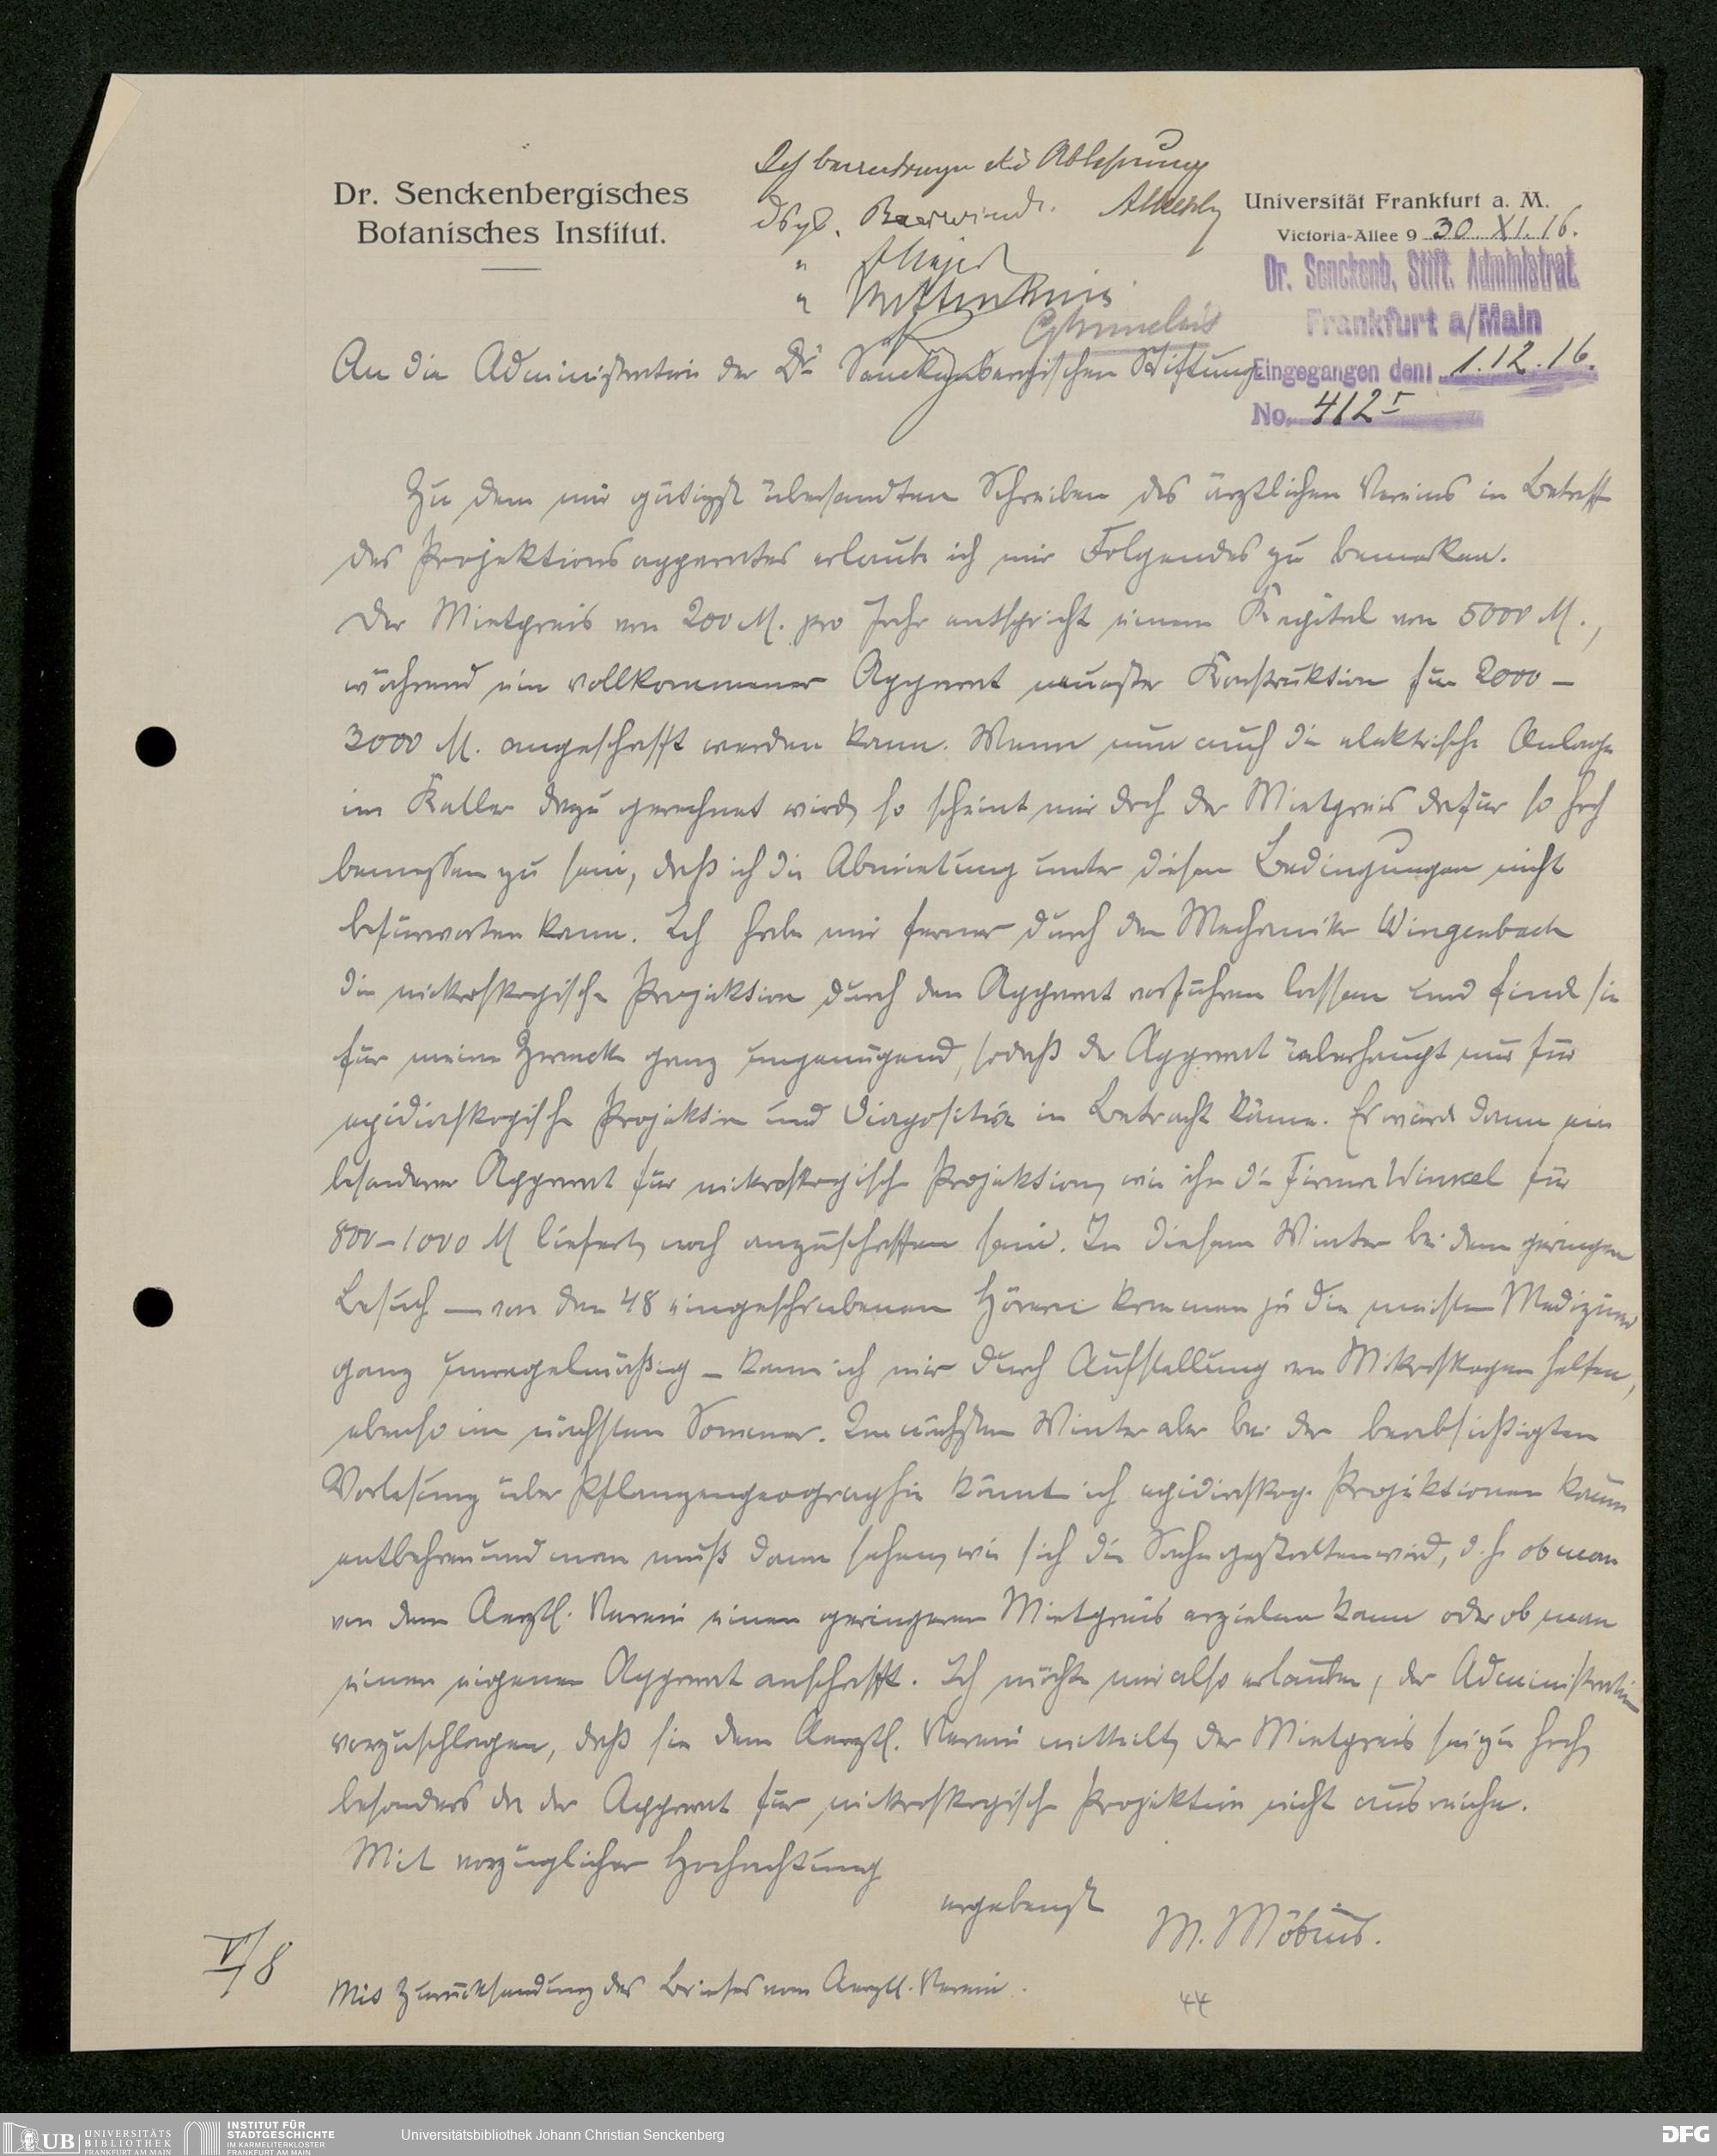 Dr. Senckenbergisches
Botanisches Institut.
Ich beantrage die Ablehnung
dsgl. Baerwindt.
"
"
Universität Frankfurt a. M.
Victoria-Allee 9 30. XI. 16.
Dr. Senckenb. Stift. Administrat.
Frankfurt a/Main
Eingegangen den: 1.12.16.
No. 412 I
An die Administration der Dr. Senckenbergischen Stiftung
Zu dem mir gütigst übersandten Schreiben des ärztlichen Vereins in Betreff
des Projektionsapparates erlaube ich mir Folgendes zu bemerken.
Der Mietpreis von 200 M. pro Jahr entspricht einem Kapital von 5000 M.,
während ein vollkommener Apparat neuester Konstruktion für 2000 –
3000 M. angeschafft werden kann. Wenn nun auch die elektrische Anlage
im Keller dazu gerechnet wird, so scheint mir doch der Mietpreis dafür so hoch
bemessen zu sein, daß ich die Abmietung unter diesen Bedingungen nicht
befürworten kann. Ich habe mir ferner durch den Mechaniker Wingenbach
die mikroskopische Projektion durch den Apparat vorführen lassen und finde sie
für meine Zwecke ganz ungenügend, sodaß der Apparat überhaupt nur für
epidiaskopische Projektion und Diapositive in Betracht käme. Er würde dann ein
besonderer Apparat für mikroskopische Projektion, wie ihn die Firma Winkel für
800–1000 M liefert, noch anzuschaffen sein. In diesem Winter bei dem geringen
Besuch — von den 48 eingeschriebenen Hörern kommen ja die meisten Mediziner
ganz unregelmäßig – kann ich mir durch Aufstellung von Mikroskopen helfen,
ebenso im nächsten Sommer. Im nächsten Winter aber bei der beabsichtigten
Vorlesung über Pflanzengeographie könnte ich epidiaskop. Projektionen kaum
entbehren und man muß dann sehen, wie sich die Sache gestalten wird, d. h. ob man
von dem Aerztl. Verein einen geringeren Mietpreis erzielen kann oder ob man
einen eigenen Apparat anschafft. Ich möchte mir also erlauben, der Administration
vorzuschlagen, daß sie dem Aerztl. Verein mitteilt, der Mietpreis sei zu hoch,
besonders da der Apparat für mikroskopische Projektion nicht ausreiche.
Mit vorzüglicher Hochachtung
ergebenst
M. Möbius.
V/8
Mit Zurücksendung des Briefes vom Aerztl. Verein.
44
UB UNIVERSITÄTS
BIBLIOTHEK
FRANKFURT AM MAIN
INSTITUT FÜR
STADTGESCHICHTE
IM KARMELITERKLOSTER
FRANKFURT AM MAIN
Universitätsbibliothek Johann Christian Senckenberg
DFG